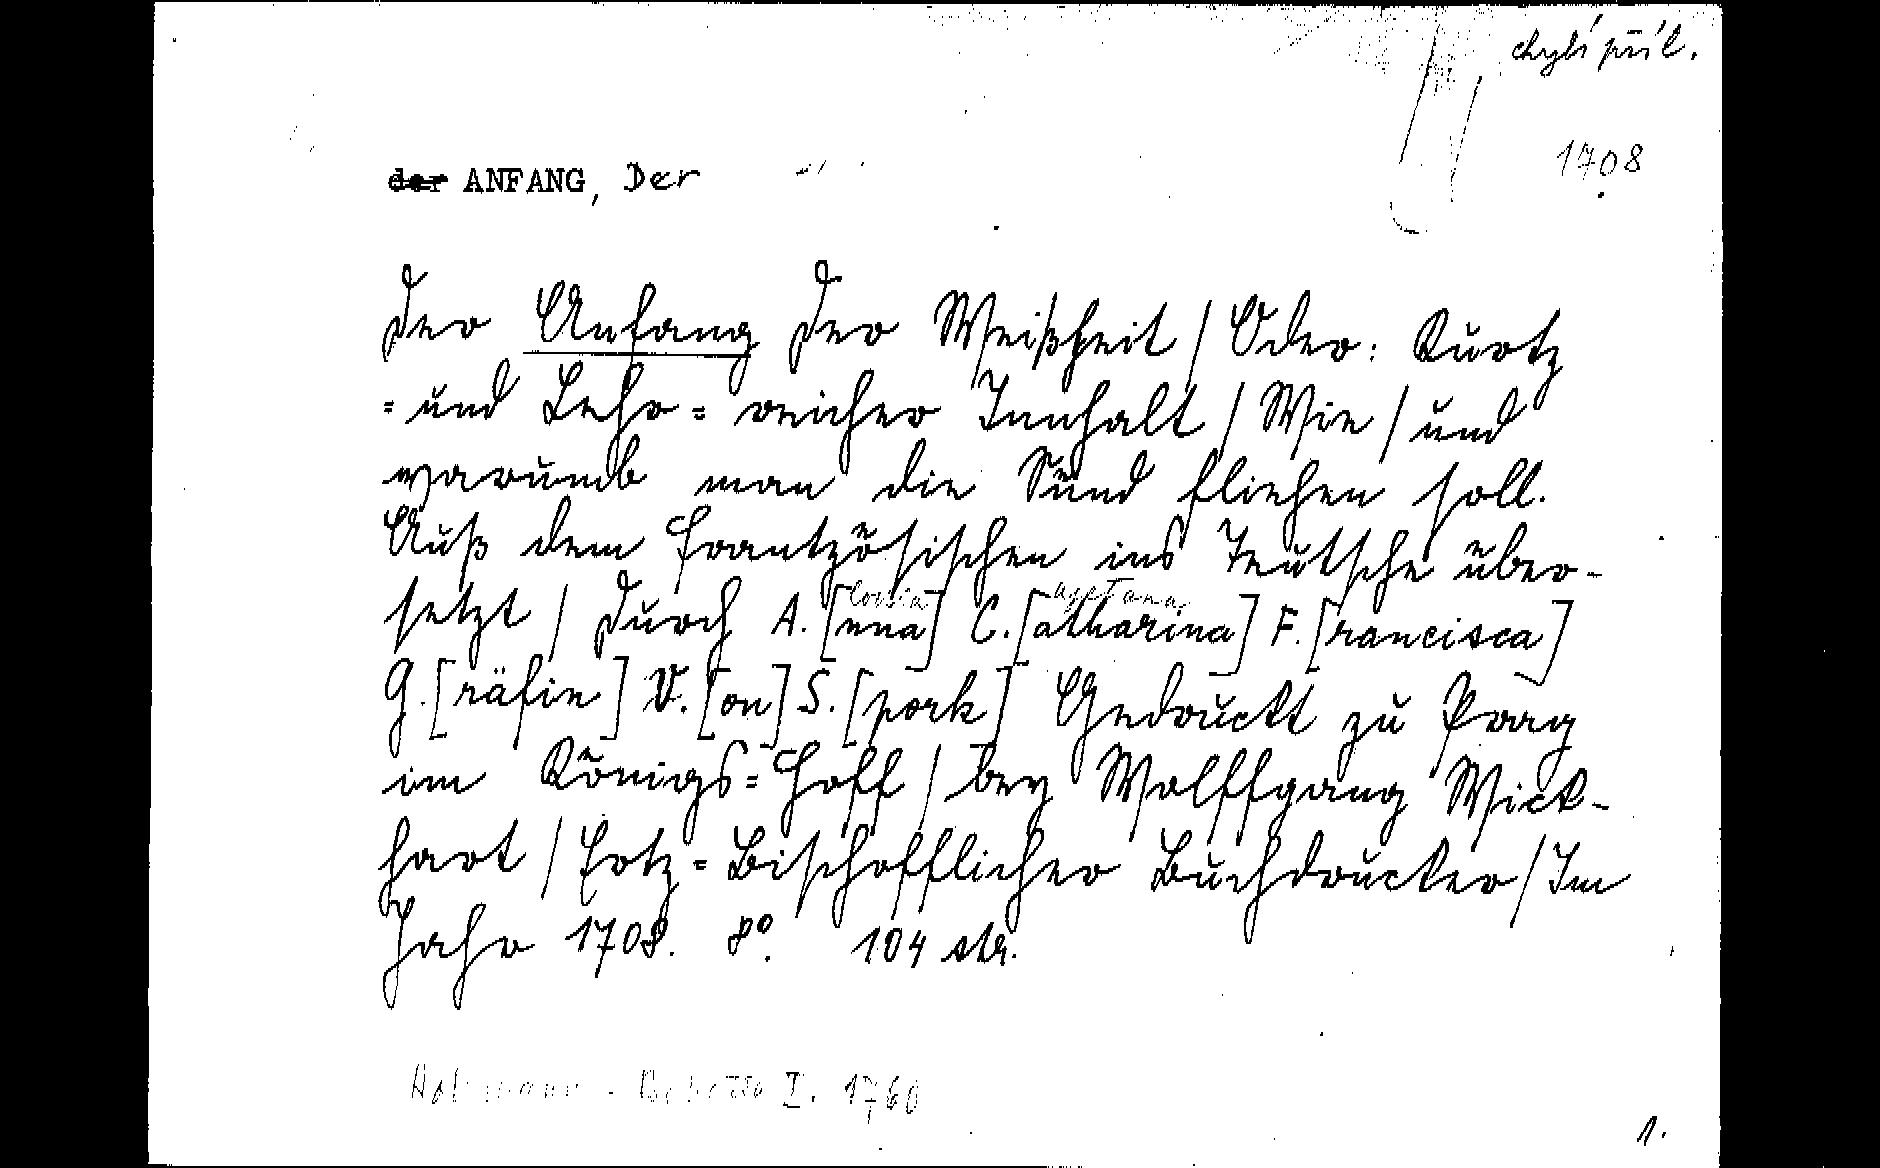 chybí příl.
1708
der ANFANG, Der
Der Anfang Der Weißheit / Oder: Kurtz
= und Lehr = reicher Innhalt / Wie / und
warumb man die Sünd fliehen soll.
Auß dem Frantzösischen ins Teutsche über-
setzt / Durch A.[nna] C.[atharina] F.[rancisca]
G.[räfin] V.[on] S.[pork] Gedruckt zu Prag
im Königs=Hoff / bey Wolffgang Wick-
hart / Ertz=Bischofflicher Buchdrucker / Im
Jahr 1708. 8°. 104 str.
I. 1760
1.